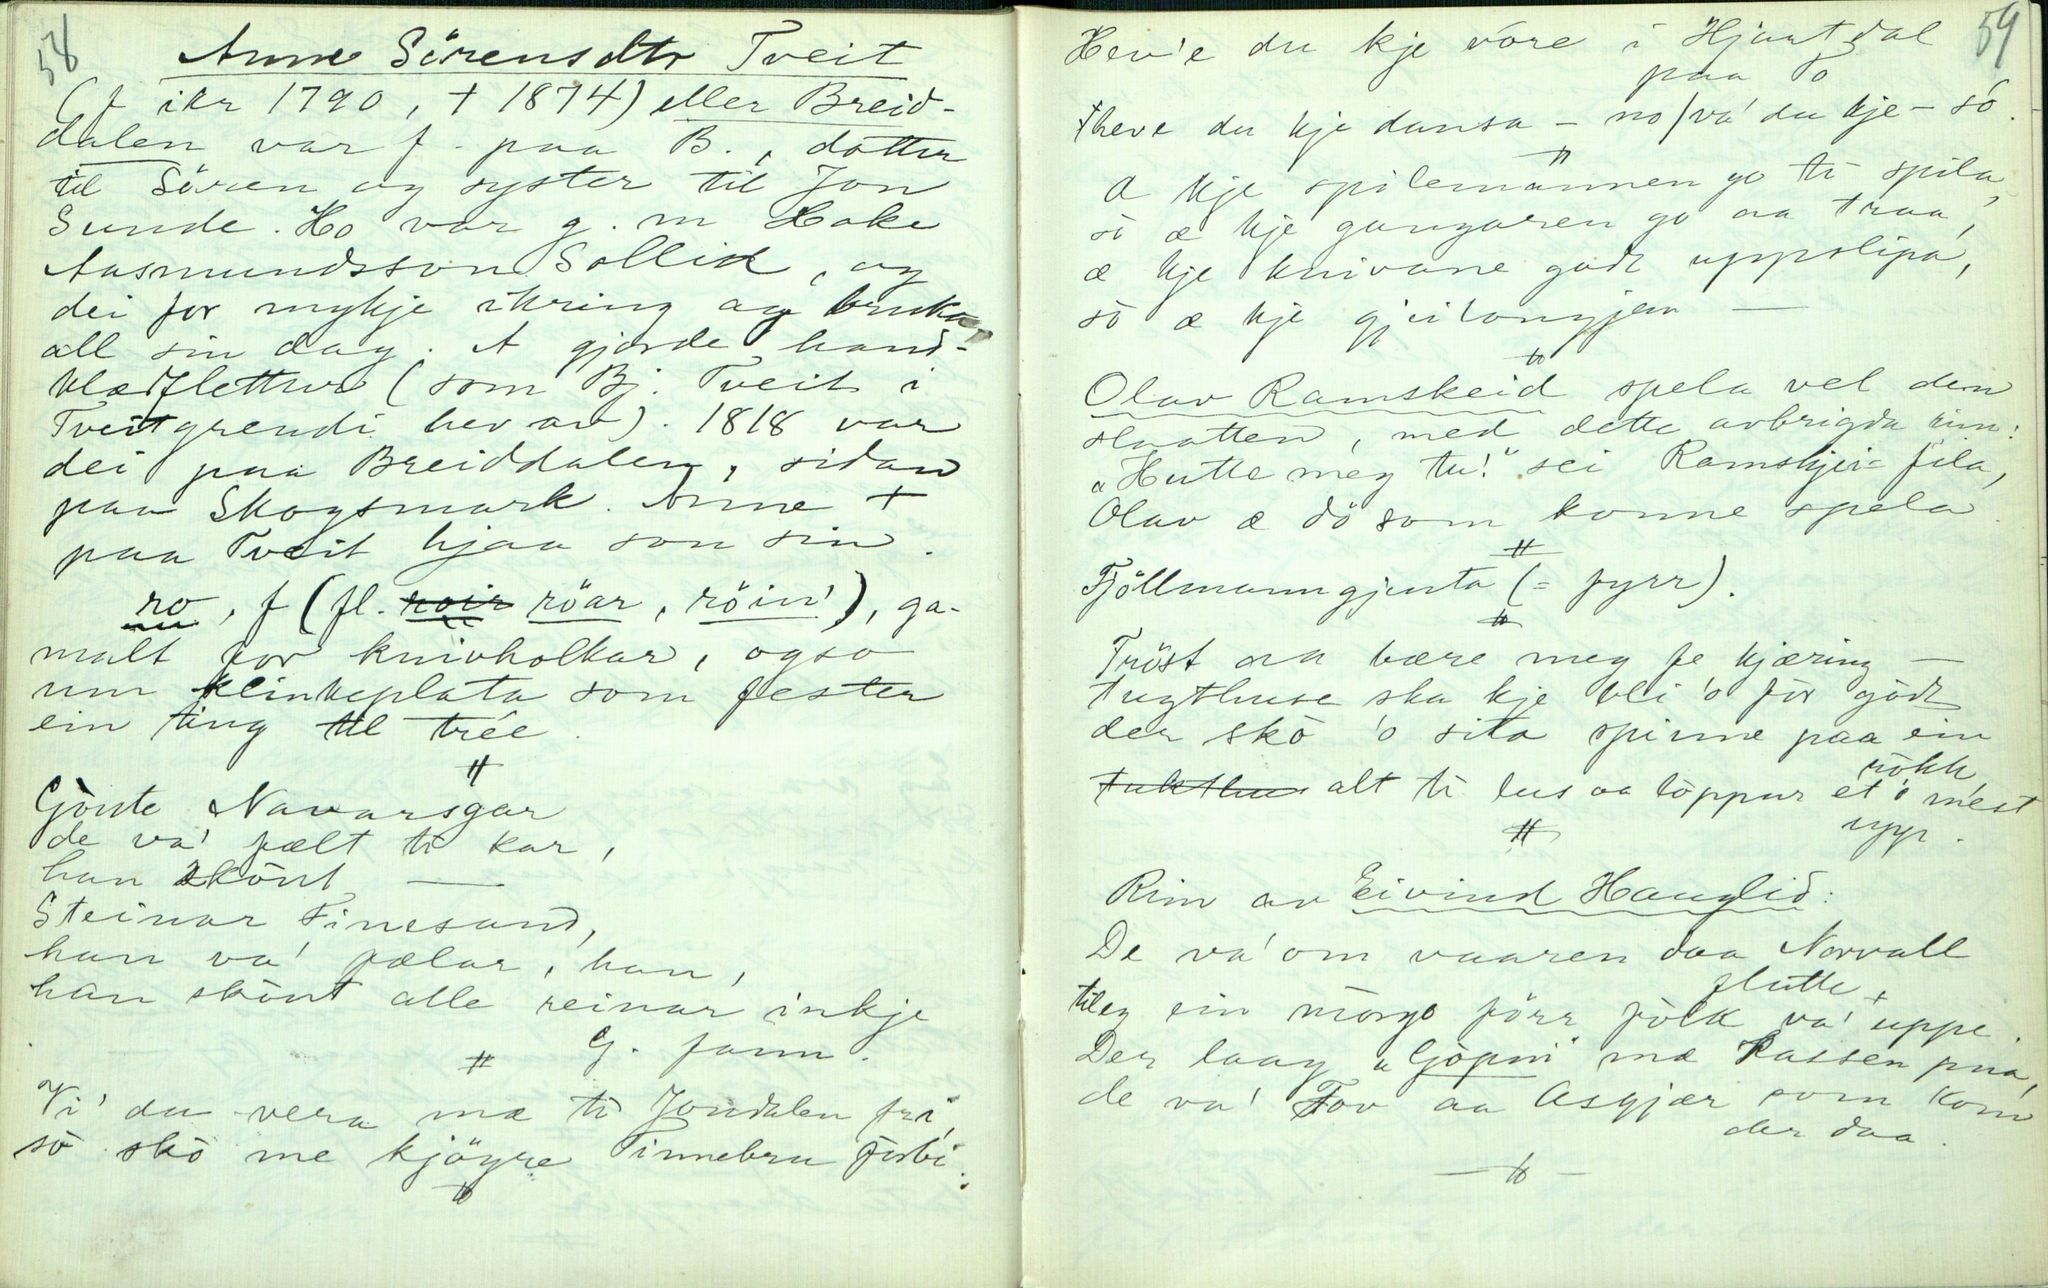 58
Anne Sörensdtr Tveit
(f ikr 1790, + 1874) eller Breid-
dalen var f. paa B., dotter
til Sören og syster til Jon
Sunde. Ho var g. m Hake
Aasmundsson Sollid, og
dei for mykje ikring og bruka
all sin dag. A gjorde hand-
klædflettur (som Bj. Tveit i
Tveitgrendi hev av). 1818 var
dei paa Breiddalen, sidan
paa Skogsmark. Anne +
paa Tveit hjaa son sin.
ro, f (fl. roir röar, röin'), ga-
malt for knivholkar, ogso
um klinkeplata som fester
ein ting til trée.
Gònte Navarsgar
de va' pælt ti kar,
han skönt —
Steinar Finesand,
han va' pælar, han,
han skönt alle reinar inkje
G. fann.
Vi' du vera mæ ti Jondalen fri,
sò skò me kjöyre Tinnebru fòrbi.
59
Hev'e du kje vóre i Hjartdal
paa To
heve du kje dansa – no/vá du kje – só.
Æ kje spilemannen go ti spila,
sò æ kje gangaren go aa traa,
æ kje knivane godt uppslipa,
sò æ kje —
Olav Ramskeid spela vel den
slaatten, med dette avbrigda rim:
"Hutte meg tu!" sei Ramskjei-fila,
Olav æ dö som konne spela.
Fjöllmanngjenta (= fyrr).
Tröst aa bære meg fe kjæring —
tugthuse ska kje bli 'o fòr gòdt
der skò 'o sita spinne paa ein
ròkk,
tukthus alt ti lus aa lòppur et 'o mest
upp.
Rim av Eivind Hauglid:
De va' om vaaren daa Norvall
flutte,
tileg ein mòrgo förr fòlk va' uppe.
Der laag "Gòpin" mæ Rassen
de va' Tov aa Asgjær som kom
der daa.